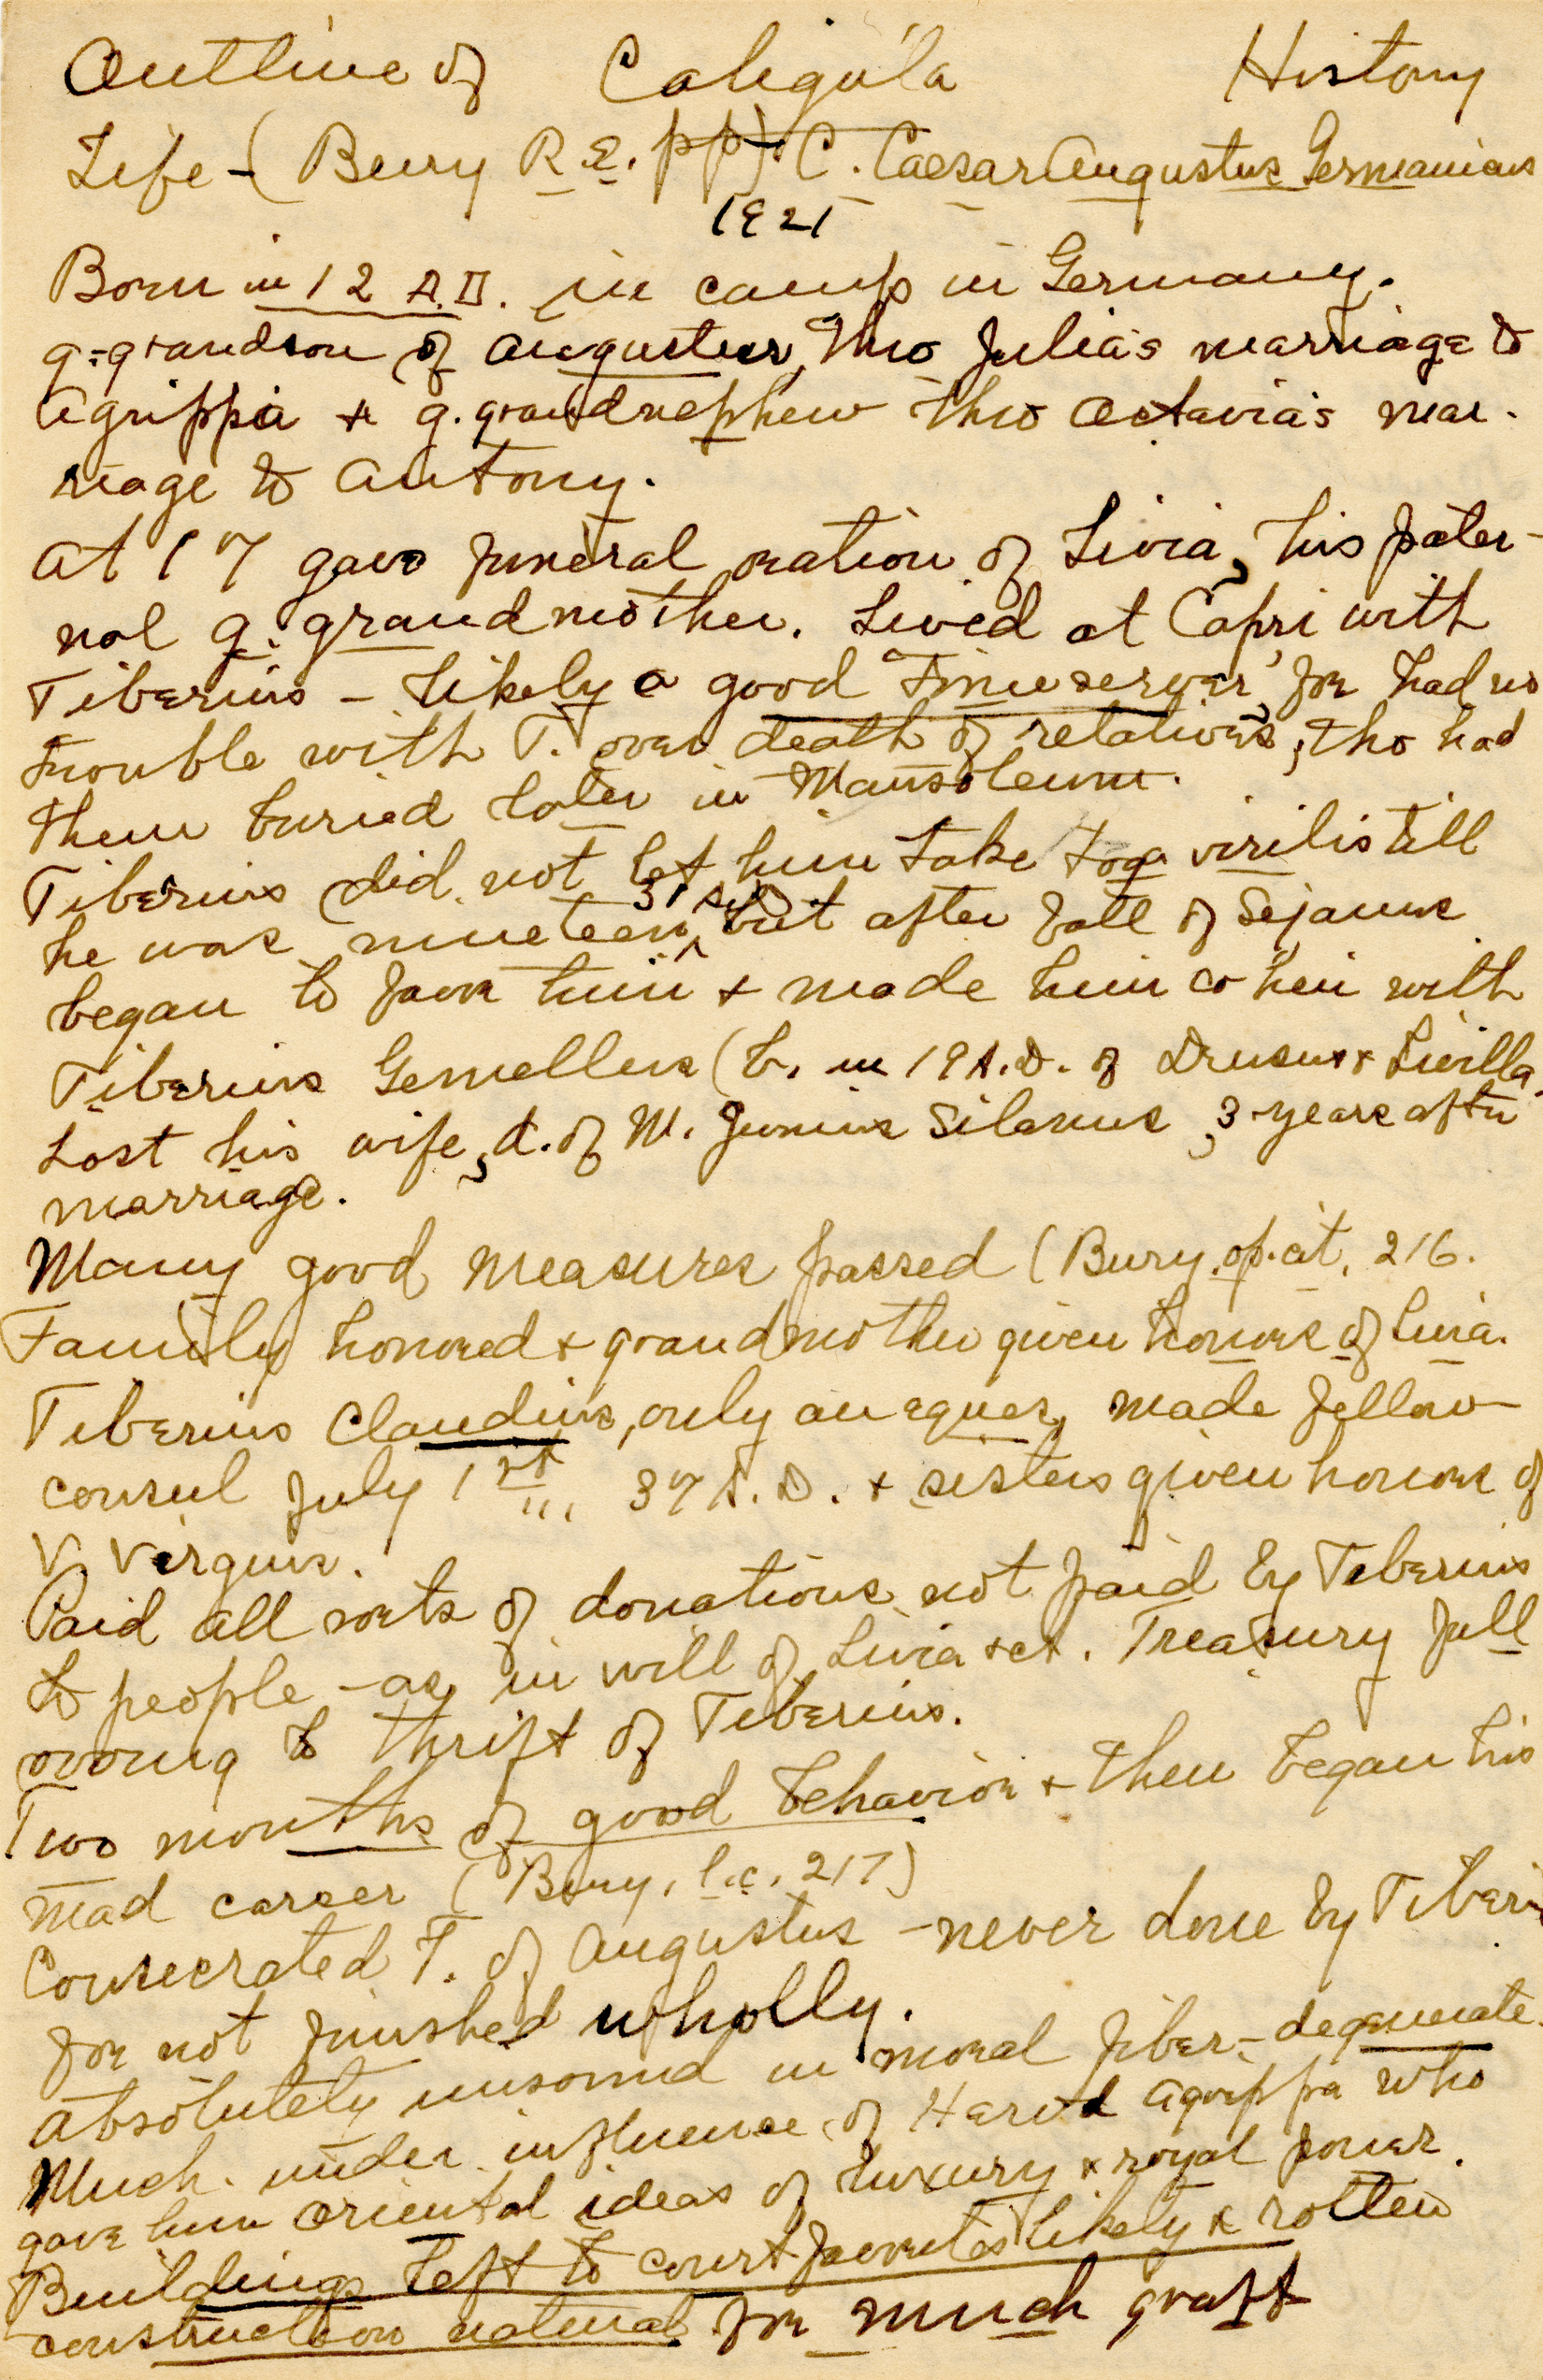 Outline of Caligula History
Life - (Bury R.E. pp). C. Caesar Augustus Germanicus
1921
Born in 12 A.D. in camp in Germany.
g-grandson of Augustus, thro Julia's marriage to
Agrippa & g. grandnephew thro Octavia's mar-
riage to Antony.
At 17 gave funeral oration of Livia, his pater-
nal g. grandmother. Lived at Capri with
Tiberius - likely a good "timeserver", for had no
trouble with T. over death of relatives, tho had
them buried later in Mausoleum.
Tiberius did not let him take toga virilis till
he was nineteen, but after fall of Sejanus
began to favor him & made him co heir with
Tiberius Gemellus (b. in 19 A.D. of Drusus & Livilla.
Lost his wife, d. of M. Junius Silanus, 3 years after
marriage.
Many good measures passed (Bury, op. cit, 216.
Family honored & grandmother given honors of Livia.
Tiberius Claudius, only an eques, made fellow
consul July 1st, 37 A.D. & sisters given honors of
V. Virgins.
Paid all sorts of donations not paid by Tiberius
to people - as in will of Livia &ct. Treasury full
owing to thrift of Tiberius.
Two months of good behavior & then began his
mad career (Bury, l.c. 217)
Consecrated T. of Augustus - never done by Tiberius
for not finished wholly.
Absolutely unsound in moral fiber, - degenerate.
Much under influence of Herod Agrippa who
gave him oriental ideas of luxury & royal power.
Buildings left to court favorites likely & rotten
construction natural for much graft